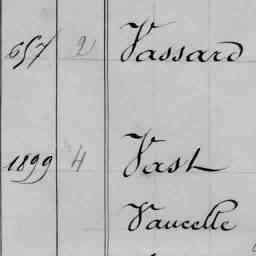 657 2 Vassard
1899 4 Vast
Vaucelle